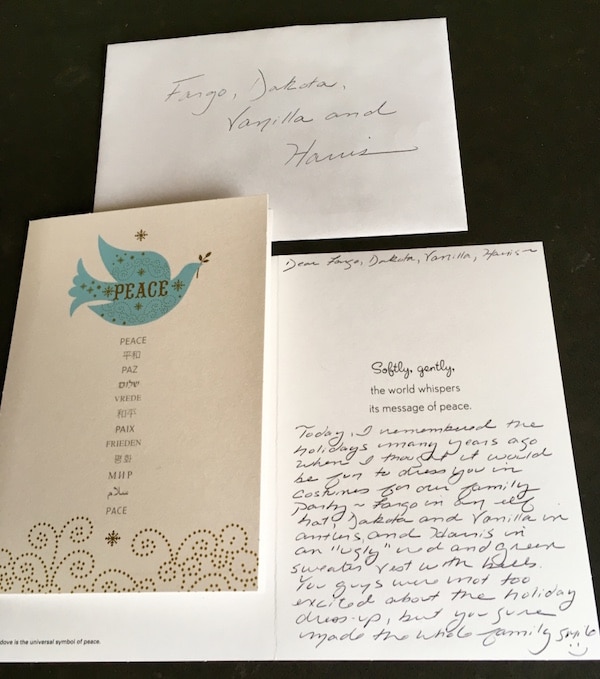 Fargo, Dakota,
Vanilla and
Harris
PEACE
PEACE
平和
PAZ
שלום
VREDE
和平
PAIX
FRIEDEN
평화
МИР
سلام
PACE
dove is the universal symbol of peace.
Dear Fargo, Dakota, Vanilla, Harris~
Softly, gently,
the world whispers
its message of peace.
Today, I remembered the
holidays many years ago
when I thought it would
be fun to dress you in
costumes for our family
party ~ Fargo in an elf
hat, Dakota and Vanilla in
antlers, and Harris in
an "ugly" red and green
sweater vest with bells.
You guys were not too
excited about the holiday
dress-up, but you sure
made the whole family smile